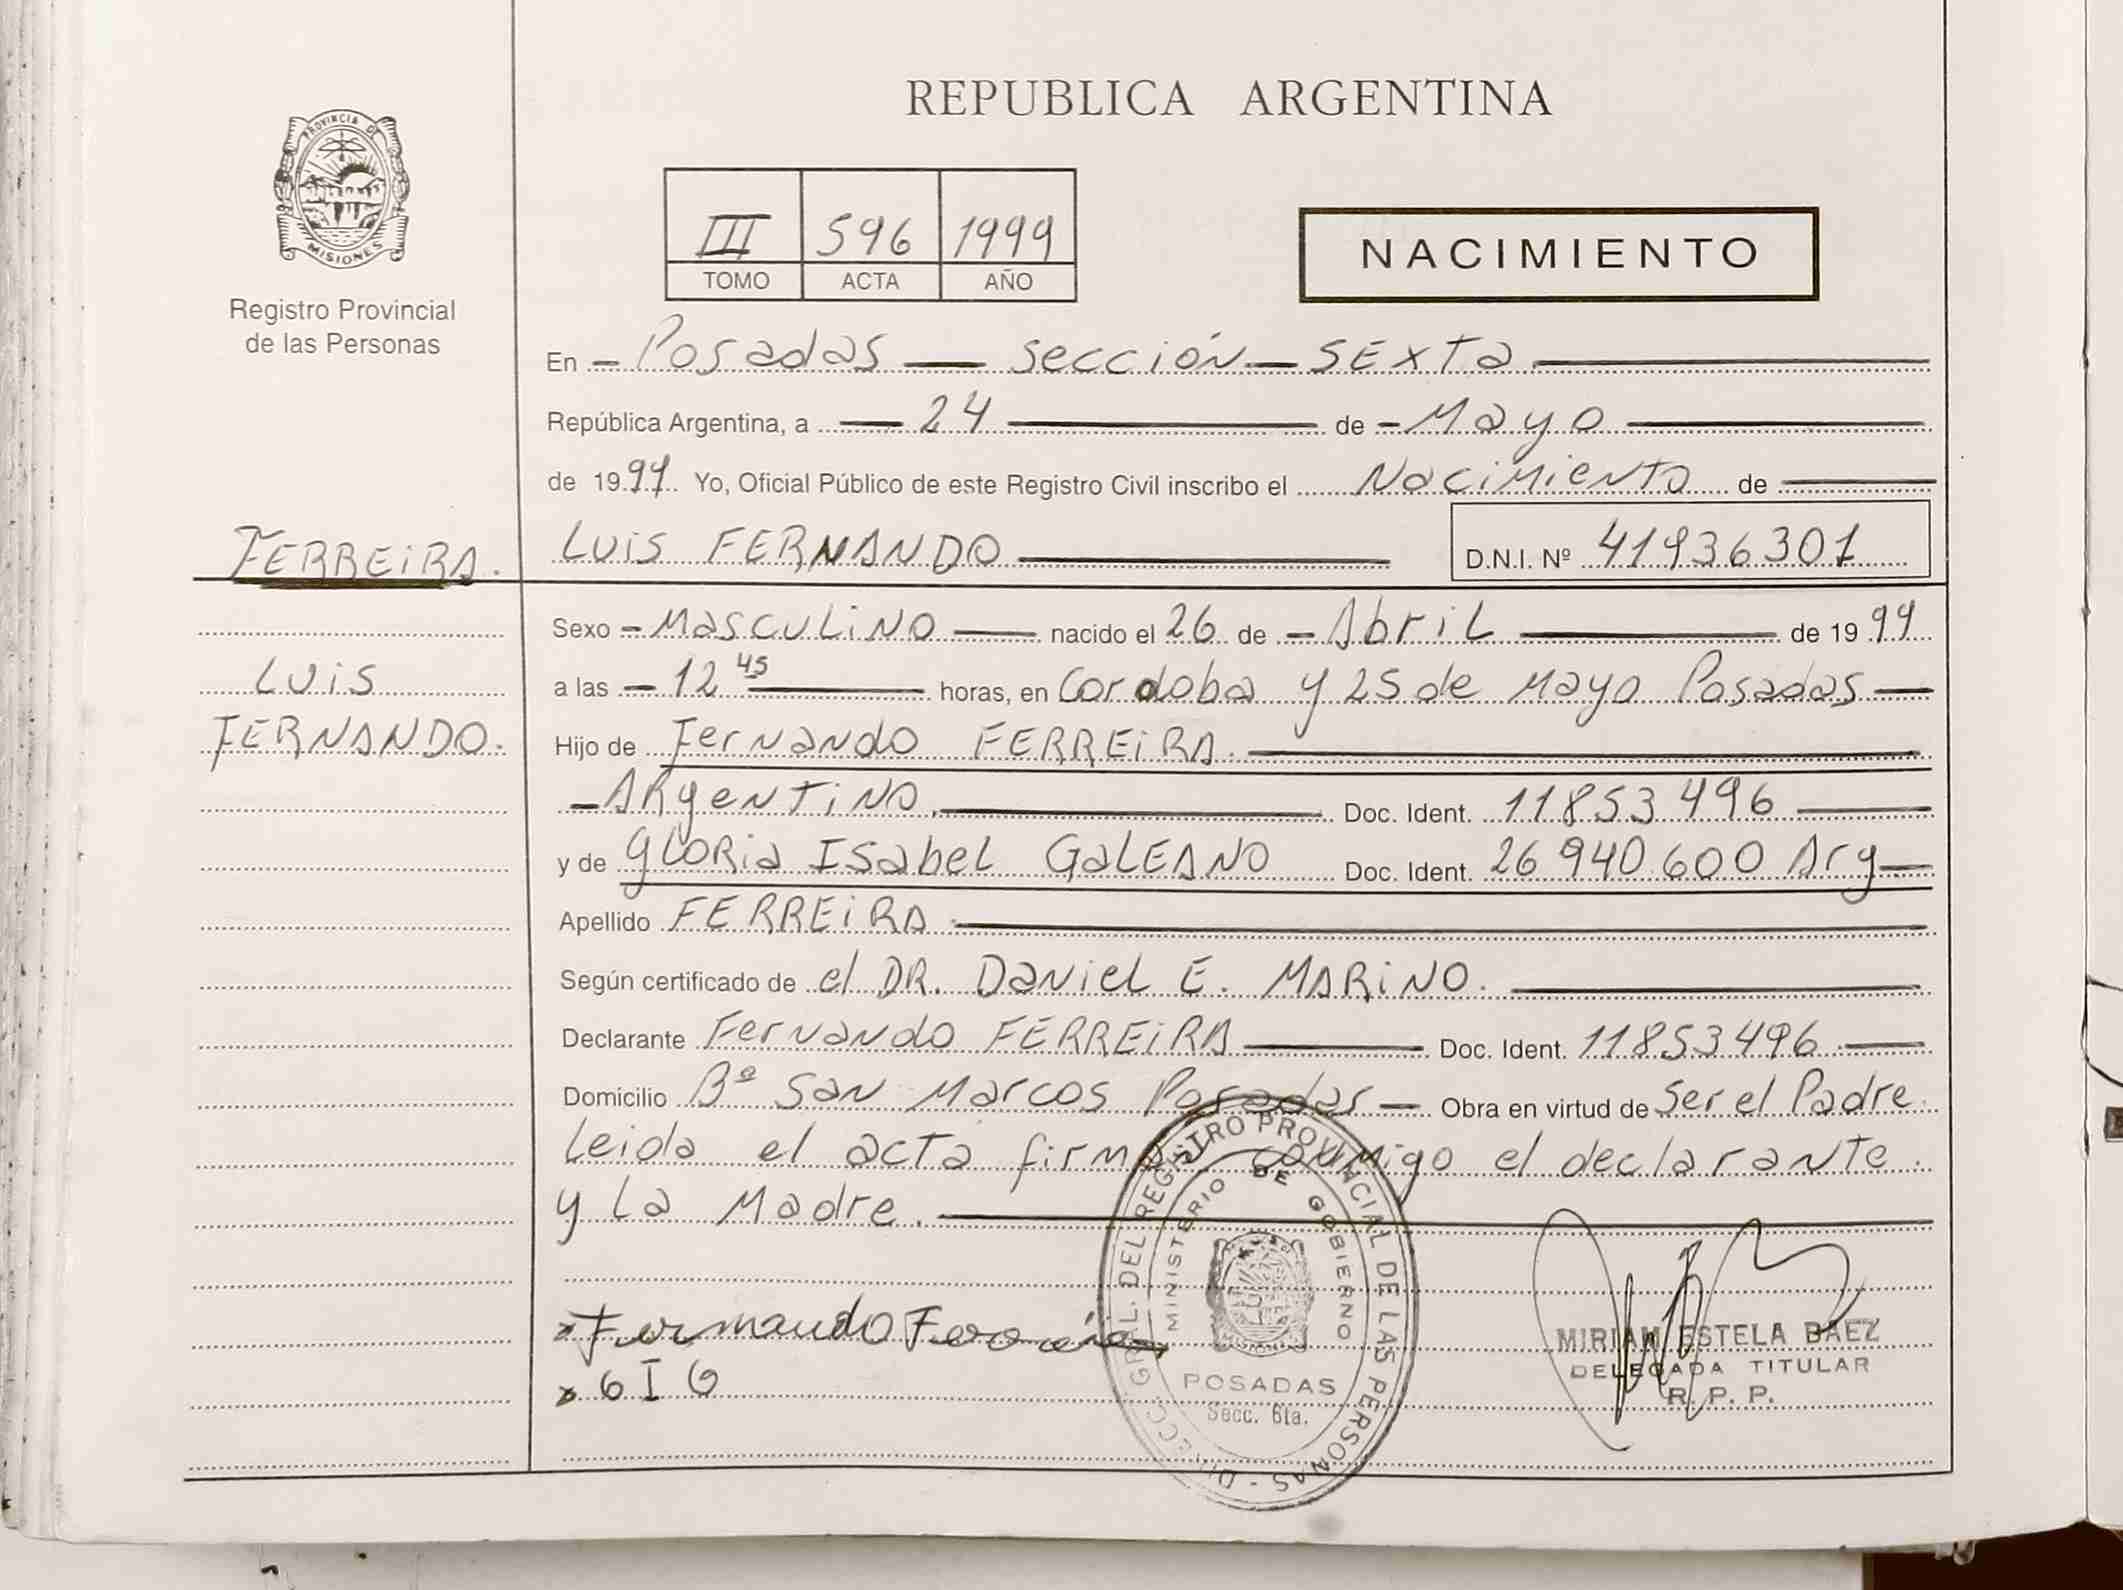 PROVINCIA DE
MISIONES
Registro Provincial
de las Personas
REPUBLICA ARGENTINA
III 596 1999
TOMO ACTA AÑO
NACIMIENTO
En - Posadas — sección - SEXTA
República Argentina, a — 24 — de - Mayo
de 1999. Yo, Oficial Público de este Registro Civil inscribo el Nacimiento de —
FERREIRA. LUIS FERNANDO — D.N.I. Nº 41936301
Sexo - Masculino — nacido el 26 de - Abril — de 1999
LUIS
a las - 12 45 — horas, en Cordoba y 25 de Mayo Posadas —
FERNANDO.
Hijo de Fernando FERREIRA. —
- Argentino. — Doc. Ident. 11853496 —
y de Gloria Isabel GALEANO Doc. Ident. 26940600 Arg —
Apellido FERREIRA. —
Según certificado de el DR. Daniel E. MARINO. —
Declarante Fernando FERREIRA — Doc. Ident. 11853496 —
Domicilio Bº San Marcos Posadas — Obra en virtud de Ser el Padre.
Leida el acta firma conmigo el declarante.
y La Madre. —
Fernando Ferreira
GIG
DIRECC. GRAL. DEL REGISTRO PROVINCIAL DE LAS PERSONAS -
MINISTERIO DE GOBIERNO
POSADAS
Secc. 6ta.
MIRIAM ESTELA BAEZ
DELEGADA TITULAR
R. P. P.